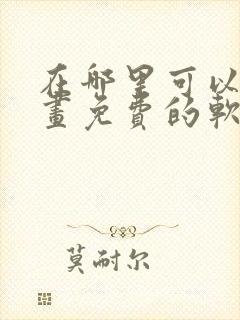 在哪里可以
畫免费的軟
莫耐尔